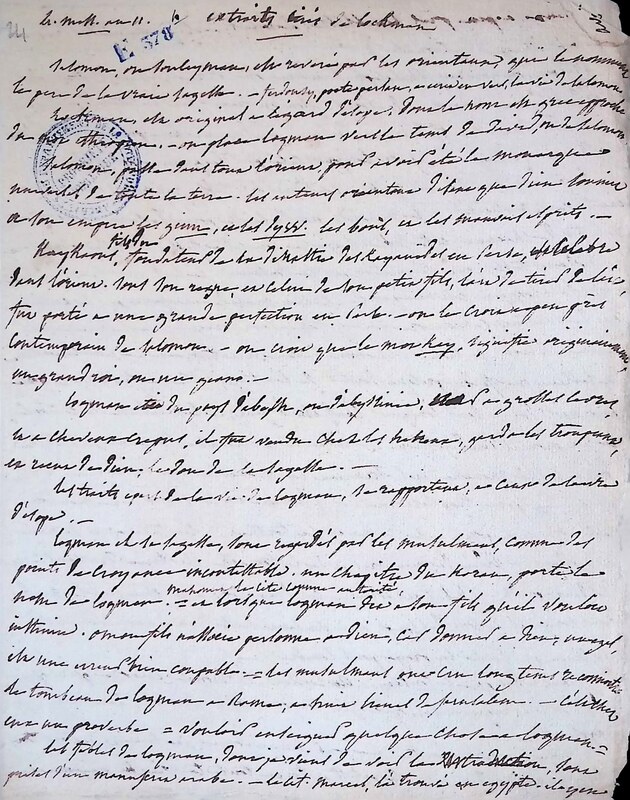 le mess. an 11. extraits tirés de lochman
E 378
Salomon, ou Souleyman, est reveré par les orientaux, qui le nomment
le pere de la vraie sagesse. – ferdousy, poete persan, a ecrit en vers, la vie de Salomon
Lochman, est original a l'egard d'esope. Dont le nom est grec approche
du mot ethiopien. – on place loqman vers le tems de David, ou de Salomon
Salomon, passe dans tout l'orient, pour avoir été le monarque
universel de toute la terre. les auteurs orientaux disent que dieu soumit
a son empire les genn, et les dyss. les bons, et les mauvais esprits. –
KayKaous, fils du fondateur de la dinastie des Kayanides en Perse, est celebre
dans l'orient. sous son regne, et celui de son petit fils, l'art de tirer de l'arc
fut porté a une grande perfection en Perse. – on le croit a peu près
contemporain de Salomon. – on croit que le mot Key, signifie originairement,
un grand roi, ou un geant. –
loqman etait du pays d'abesh, ou d'abyssinie, a grosses levres,
et a cheveux crepus, il fut vendu chez les hebreux, garda les troupeaux,
et recut de dieu, le don de la sagesse. –
les traits epars de la vie de loqman, se rapportent, a ceux de la vie
d'esope. –
Loqman et sa sagesse, sont regardés par les musulmans, comme des
points de croyance incontestable. un chapitre du Koran, porte le
nom de loqman. mahomet le cite comme autorité = et lorsque loqman dit a son fils qu'il vouloit
instruire. o mon fils n'associe personne a dieu, car donner a dieu, un egal,
est une erreur bien coupable = des musulmans ont cru longtems reconnoitre
le tombeau de loqman a Ramé, a trois lieues de jerusalem. – c'est chez
eux un proverbe = vouloir enseigner quelque chose a loqman. =
les fables de loqman, dont je viens de voir la traduction, sont
prises d'un manuscrit arabe. – le cit. marcel, l'a trouvé en egypte.